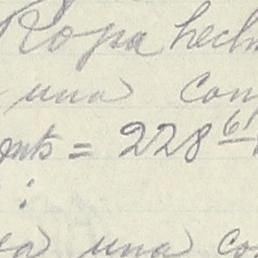 Ropa hech
una con
= 228 61
una co